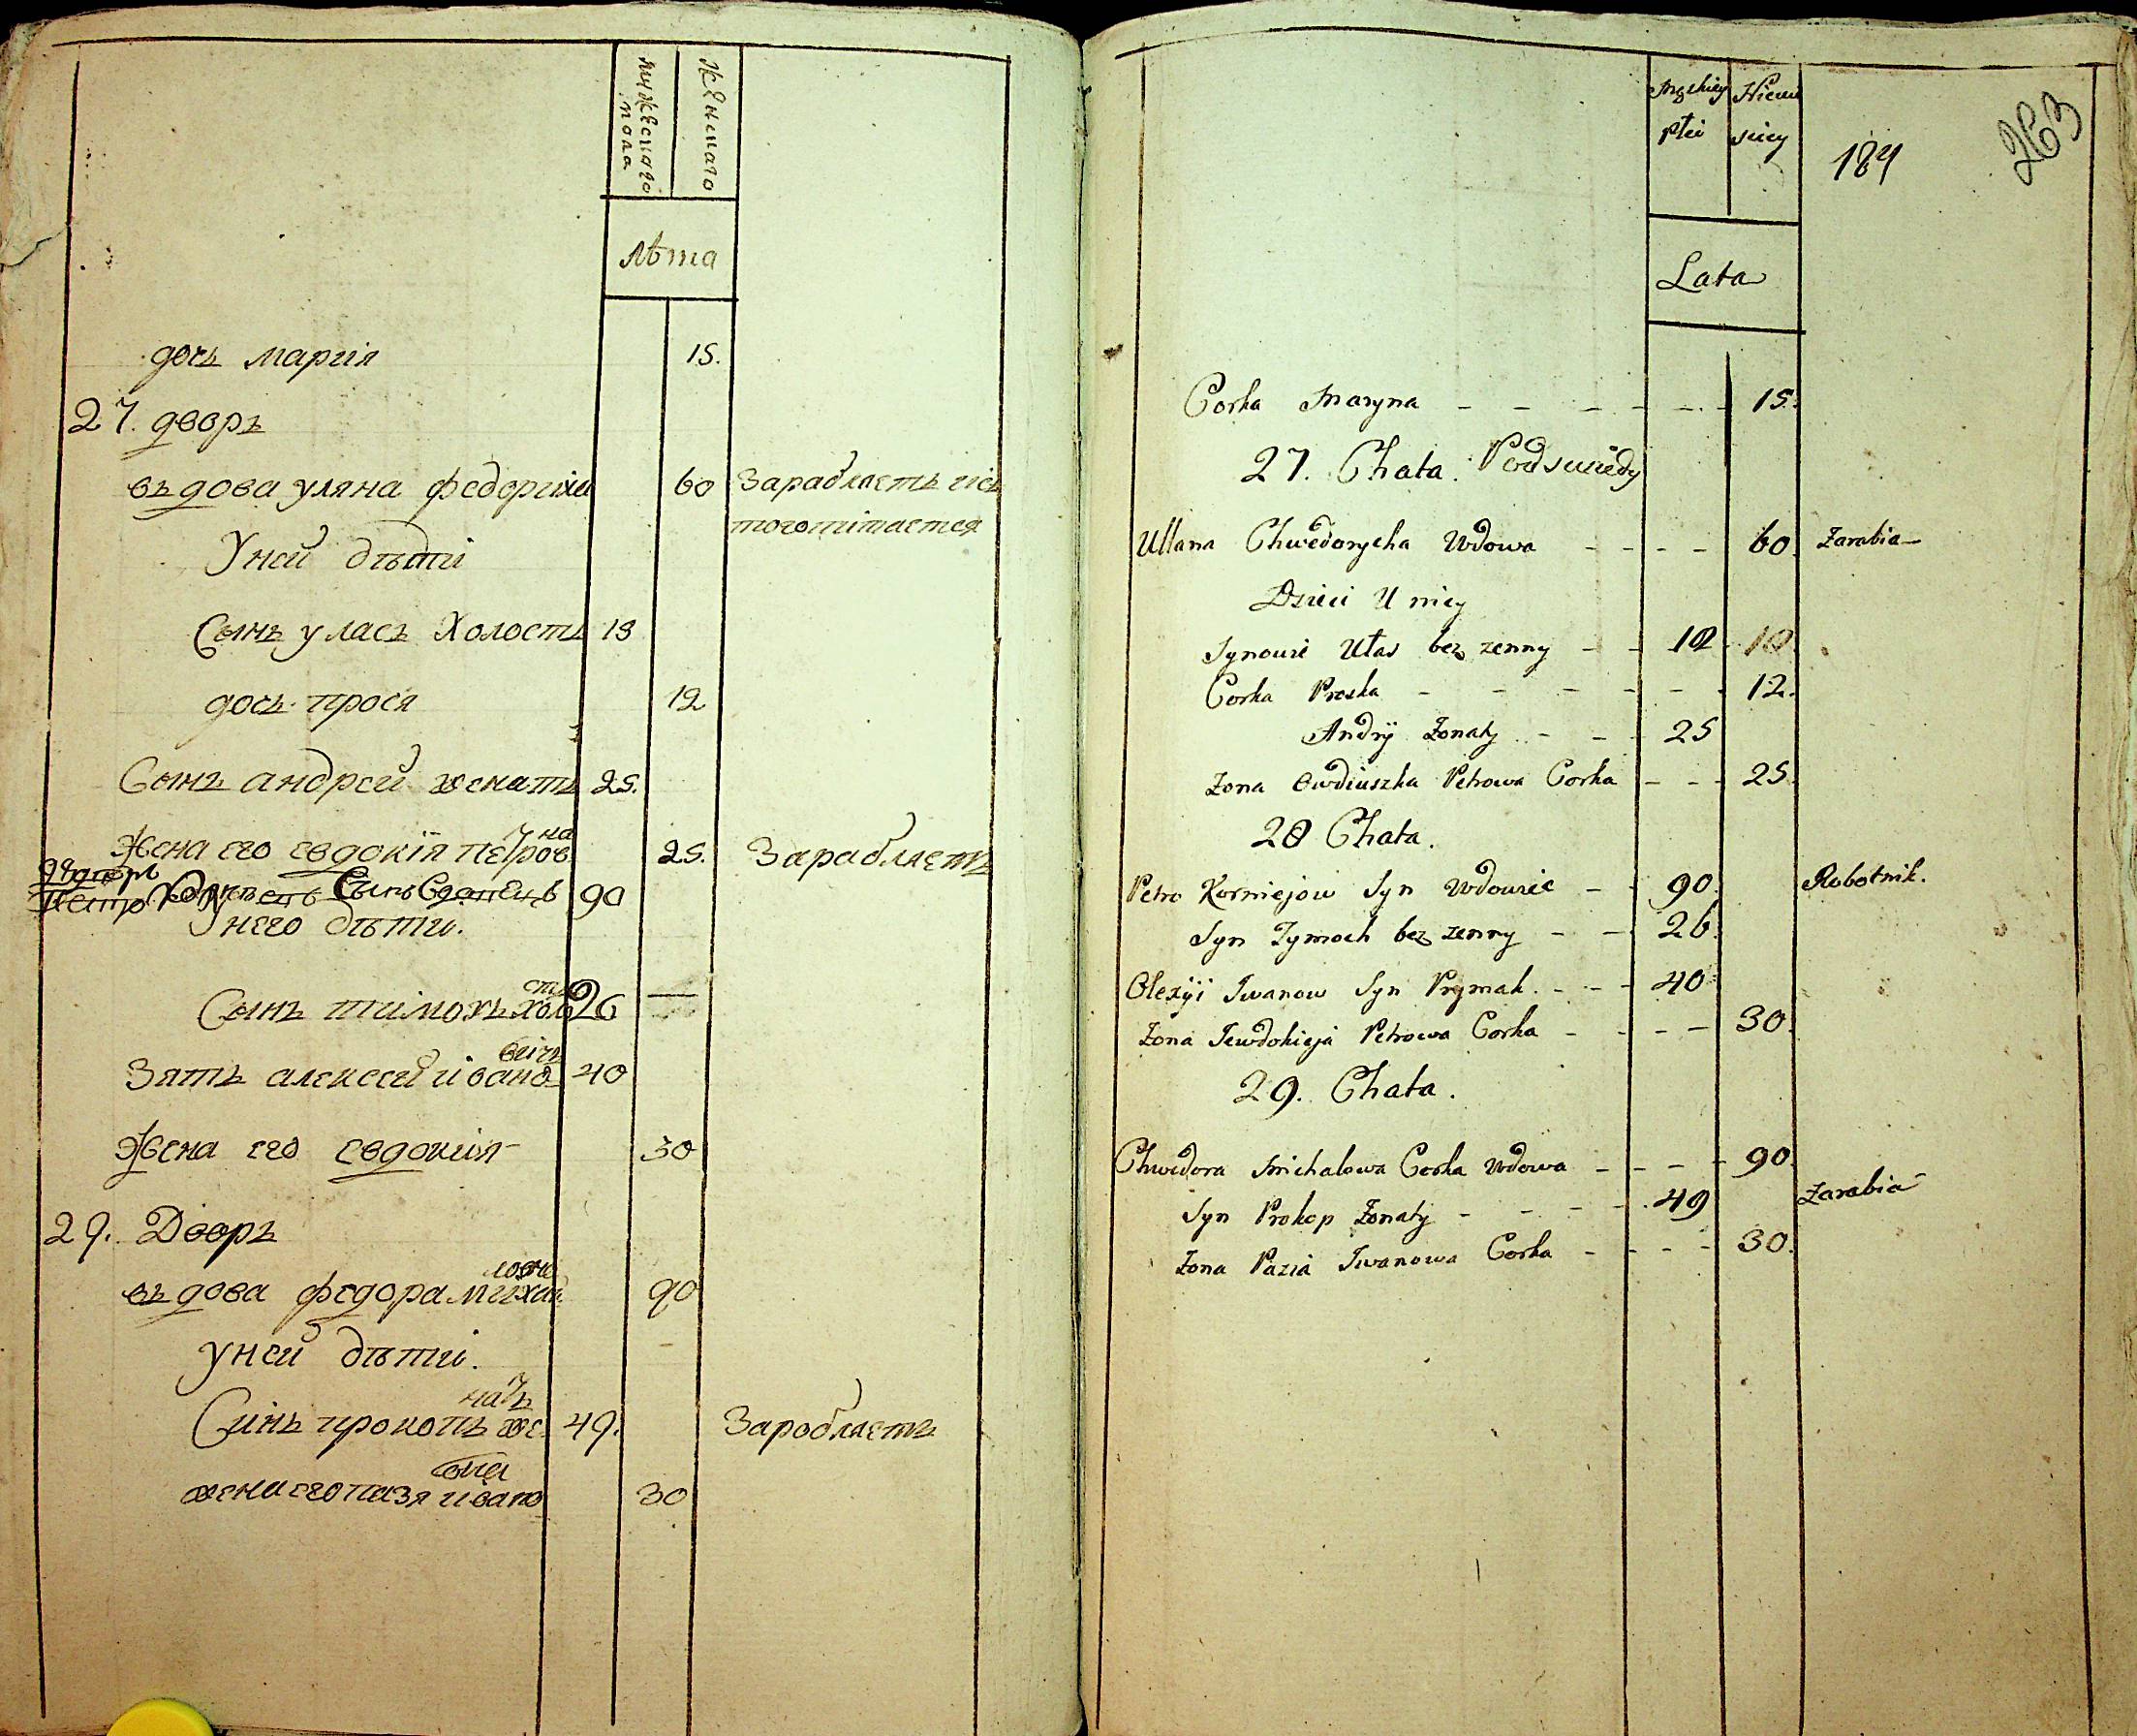 мужескаго пола
женскаго
лѣта
дочь мария 15.
27. дворъ
въдова уляна федориха 60 Зарабляетъ исъ
того питается
У ней дѣти
Сынъ уласъ Холостъ 18
дочь прося 12
Сынъ андрей женатъ 25.
Жена его евдокія петровна 25. Зарабляетъ
28 дворъ
Петро Сынъ 90
У него дѣти.
Сынъ тимохъ холостъ 26 —
Зять алексей иванович 40
Жена его евдокия 30
29. Дворъ
въдова федора михайловна 90
У ней дѣти.
Синъ прокопъ женатъ 49. Заробляетъ
жена его пазя ивановна 30
Męskiey Płci
Niewiesciey
184
263
Lata
Corka Maryna - - - - - - 15.
27. Chata. Podsusiedy
Ullana Chwedorycha Wdowa - - - - 60. Zarabia
Dzieci U niey
Synowie Ułas bez zenny - - 18 18
Corka Proska - - - - - - 12.
Andrÿ Zonaty - - - 25
Zona Owdiuszka Petrowa Corka - - - 25.
28 Chata.
Petro Korniejow Syn Wdowiec - - 90. Robotnik.
Syn Tymoch bez zenny - - 26.
Olexÿi Iwanow Syn Prymak. - - - 40
Zona Jewdokieja Petrowa Corka - - - - 30.
29. Chata.
Chwedora Michalowa Corka Wdowa - - - - 90.
Syn Prokop Zonaty - - - - 49 Zarabia
Zona Pazia Iwanowa Corka - - - - 30.